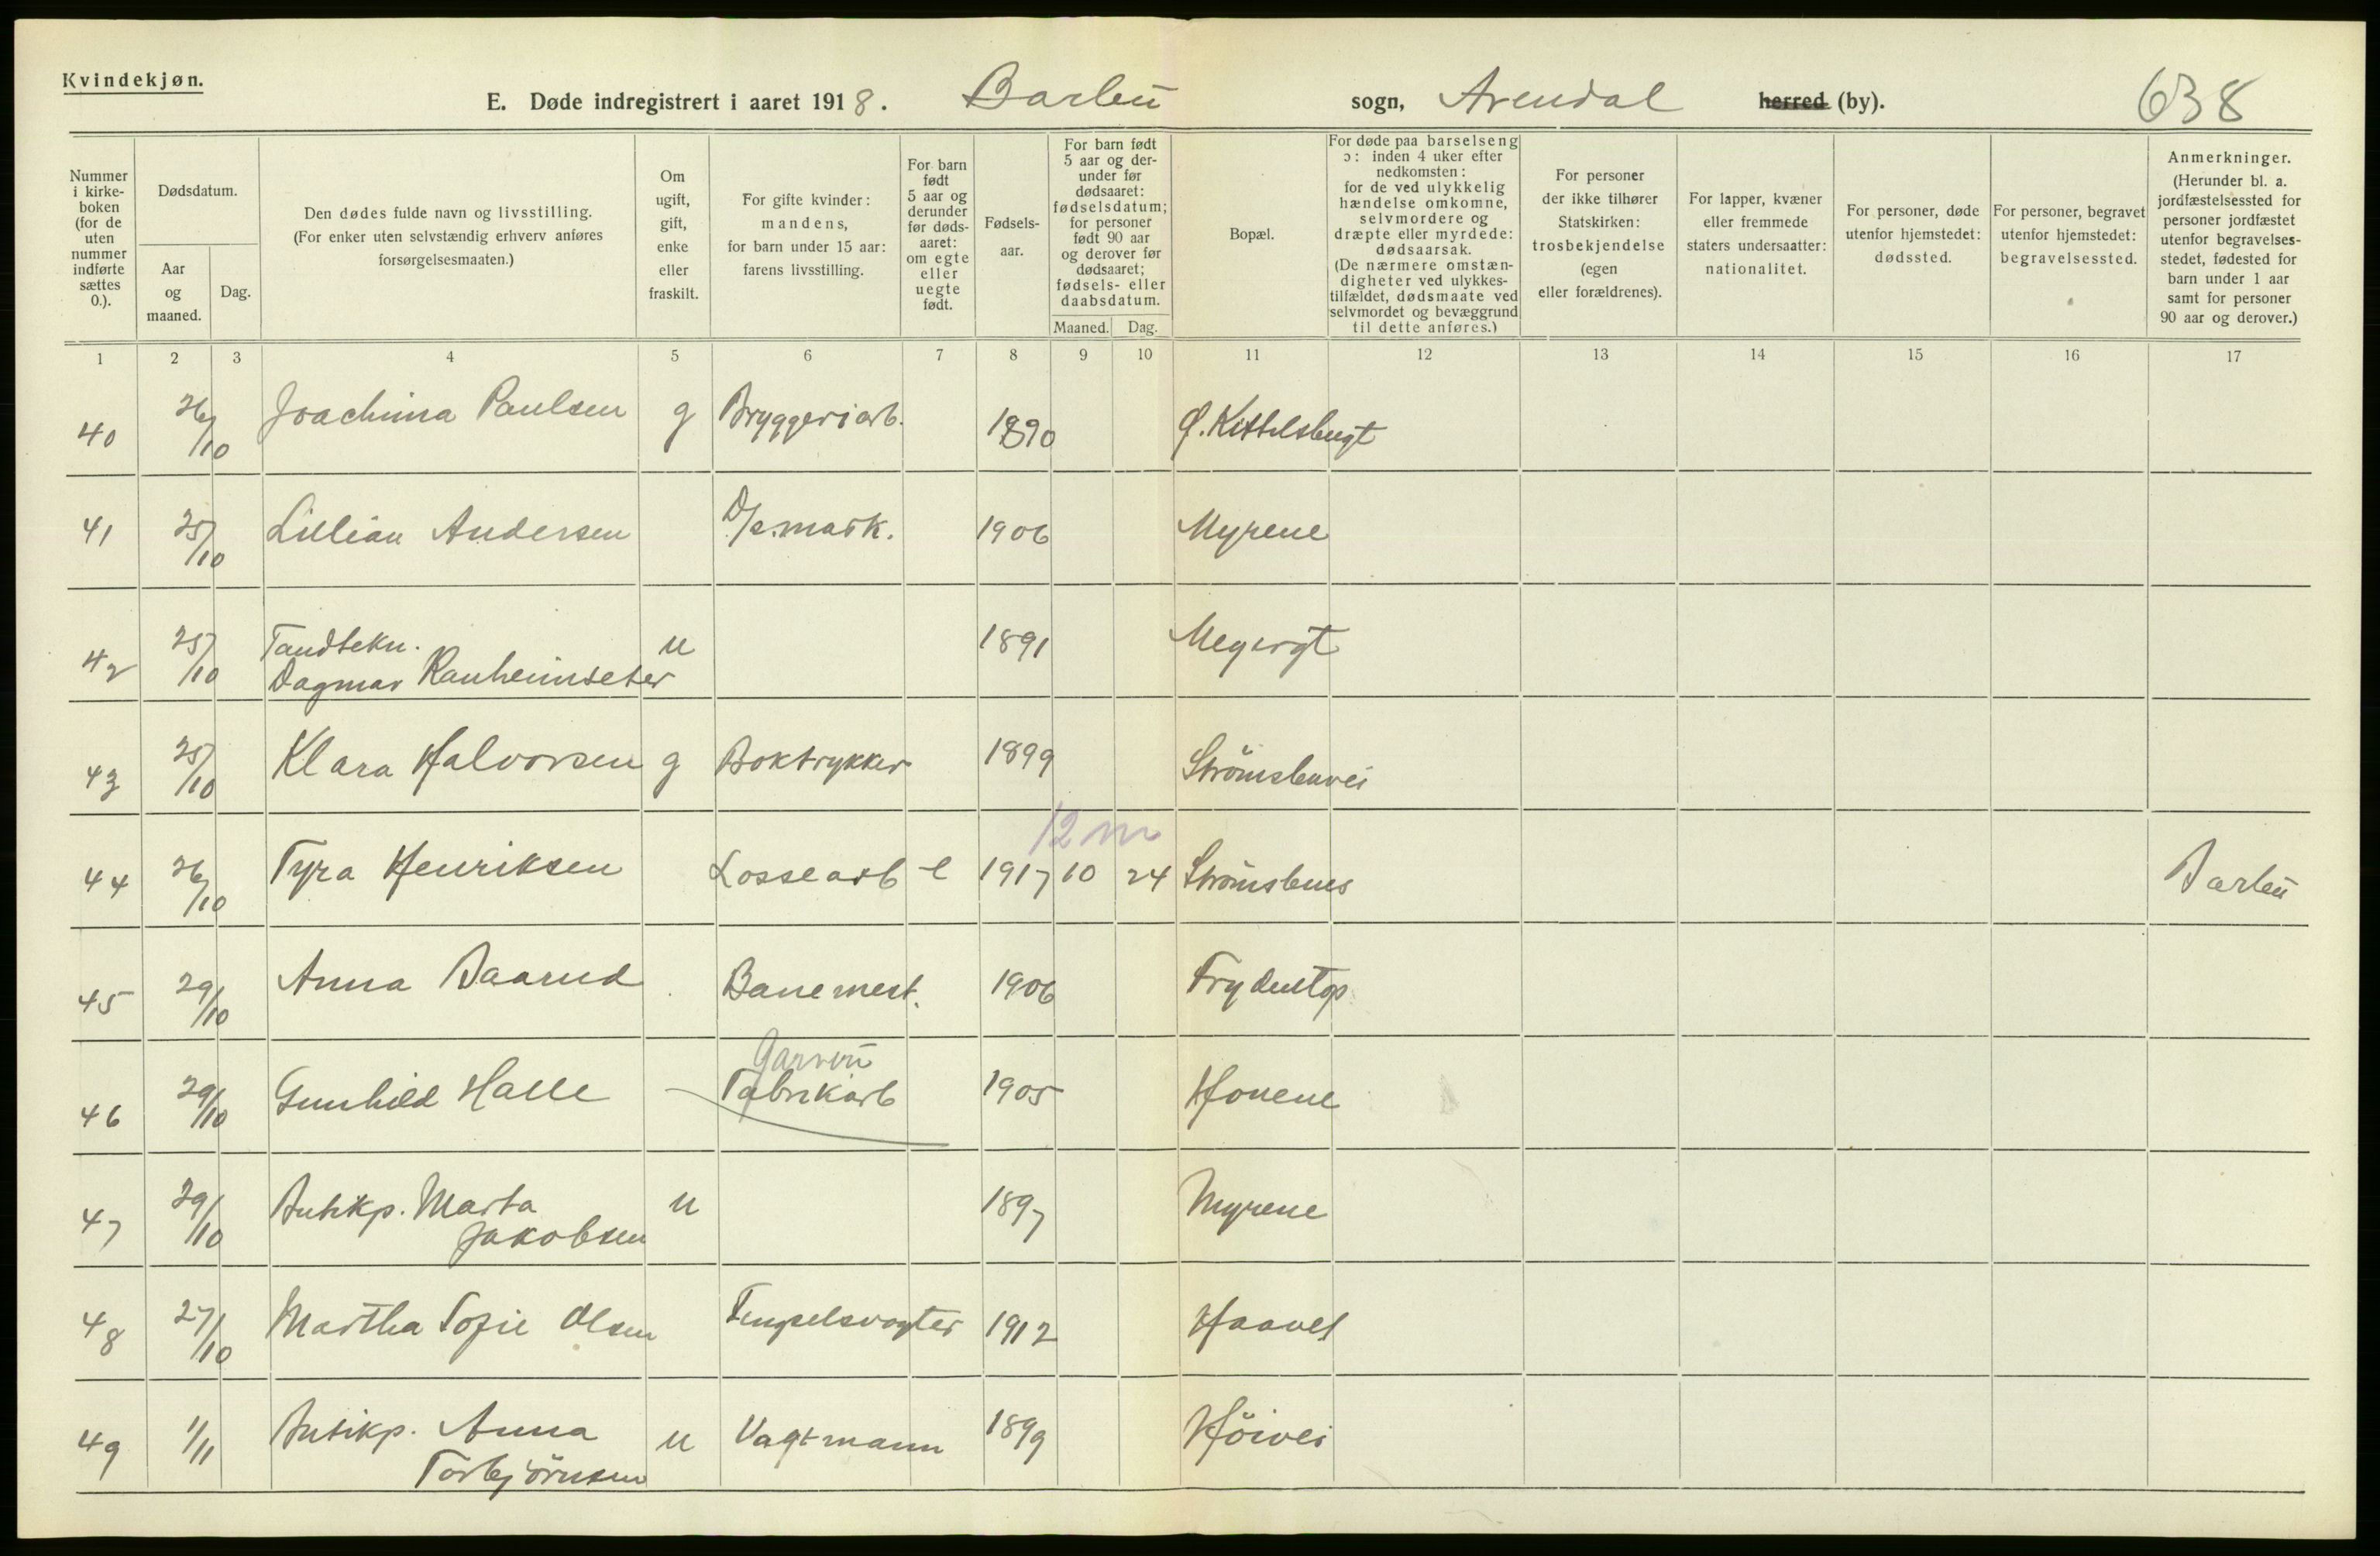 Kvindekjøn.
E. Døde indregistrert i aaret 1918. Barbu sogn, Arendal herred (by). 638
Nummer i kirke- boken (for de uten nummer indførte sættes 0.).
Dødsdatum.
Aar og maaned.
Dag.
Den dødes fulde navn og livsstilling.
(For enker uten selvstændig erhverv anføres
forsørgelsesmaaten.)
Om ugift, gift, enke eller fraskilt.
For gifte kvinder:
mandens,
for barn under 15 aar:
farens livsstilling.
For barn født 5 aar og derunder før døds- aaret: om egte eller uegte født.
Fødsels- aar.
For barn født 5 aar og der- under før dødsaaret: fødselsdatum; for personer født 90 aar og derover før dødsaaret; fødsels- eller daabsdatum.
Maaned. Dag.
Bopæl.
For døde paa barselseng
ɔ: inden 4 uker efter
nedkomsten:
for de ved ulykkelig
hændelse omkomne,
selvmordere og
dræpte eller myrdede:
dødsaarsak.
(De nærmere omstæn-
digheter ved ulykkes-
tilfældet, dødsmaate ved
selvmordet og bevæggrund
til dette anføres.)
For personer
der ikke tilhører
Statskirken:
trosbekjendelse
(egen
eller forældrenes).
For lapper, kvæner
eller fremmede
staters undersaatter:
nationalitet.
For personer, døde
utenfor hjemstedet:
dødssted.
For personer, begravet
utenfor hjemstedet:
begravelsessted.
Anmerkninger.
(Herunder bl. a.
jordfæstelsessted for
personer jordfæstet
utenfor begravelses-
stedet, fødested for
barn under 1 aar
samt for personer
90 aar og derover.)
1 2 3 4 5 6 7 8 9 10 11 12 13 14 15 16 17
40 26/10 Joachima Paulsen g Bryggeriarb. 1890 Ø. Kittelsbugt
41 25/10 Lillian Andersen D/s.mask. 1906 Myrene
42 25/10 Tandtekn. u 1891 Meyergt
Dagmar Ranheimseter
43 25/10 Klara Halvorsen g Boktrykker 1899 Strömsbuvei
12 m
44 26/10 Tyra Henriksen Lossearb e 1917 10 24 Strömsbu Barbu
45 29/10 Anna Baarud Banemest. 1906 Frydentop
Garveri
46 29/10 Gunhild Halle Fabrikarb 1905 Honene
47 29/10 Butikp. Marta u 1897 Myrene
Jakobsen
48 27/10 Martha Sofie Olsen Fengselsvagter 1912 Haavet
49 1/11 Butikp. Anna u Vagtmann 1899 Höivei
Torbjörnsen